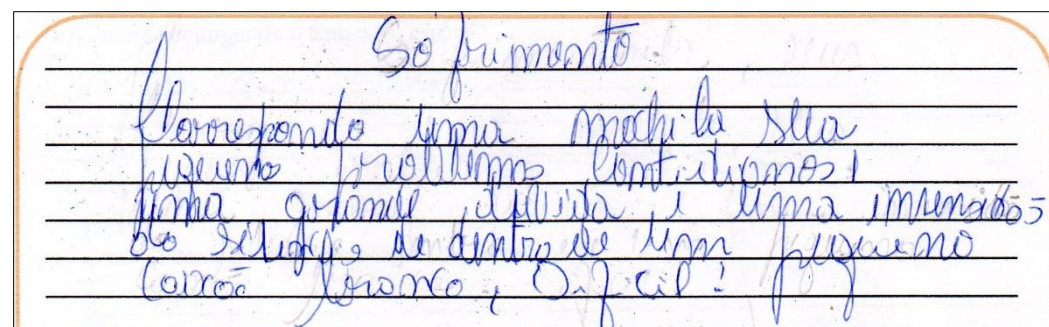 Sofrimento
Correspondo uma mochila sua
pequeno problemas contidianos,
uma grande duvida e uma imensidão
do de dentro de um pequeno
caixão branco, Dificil!